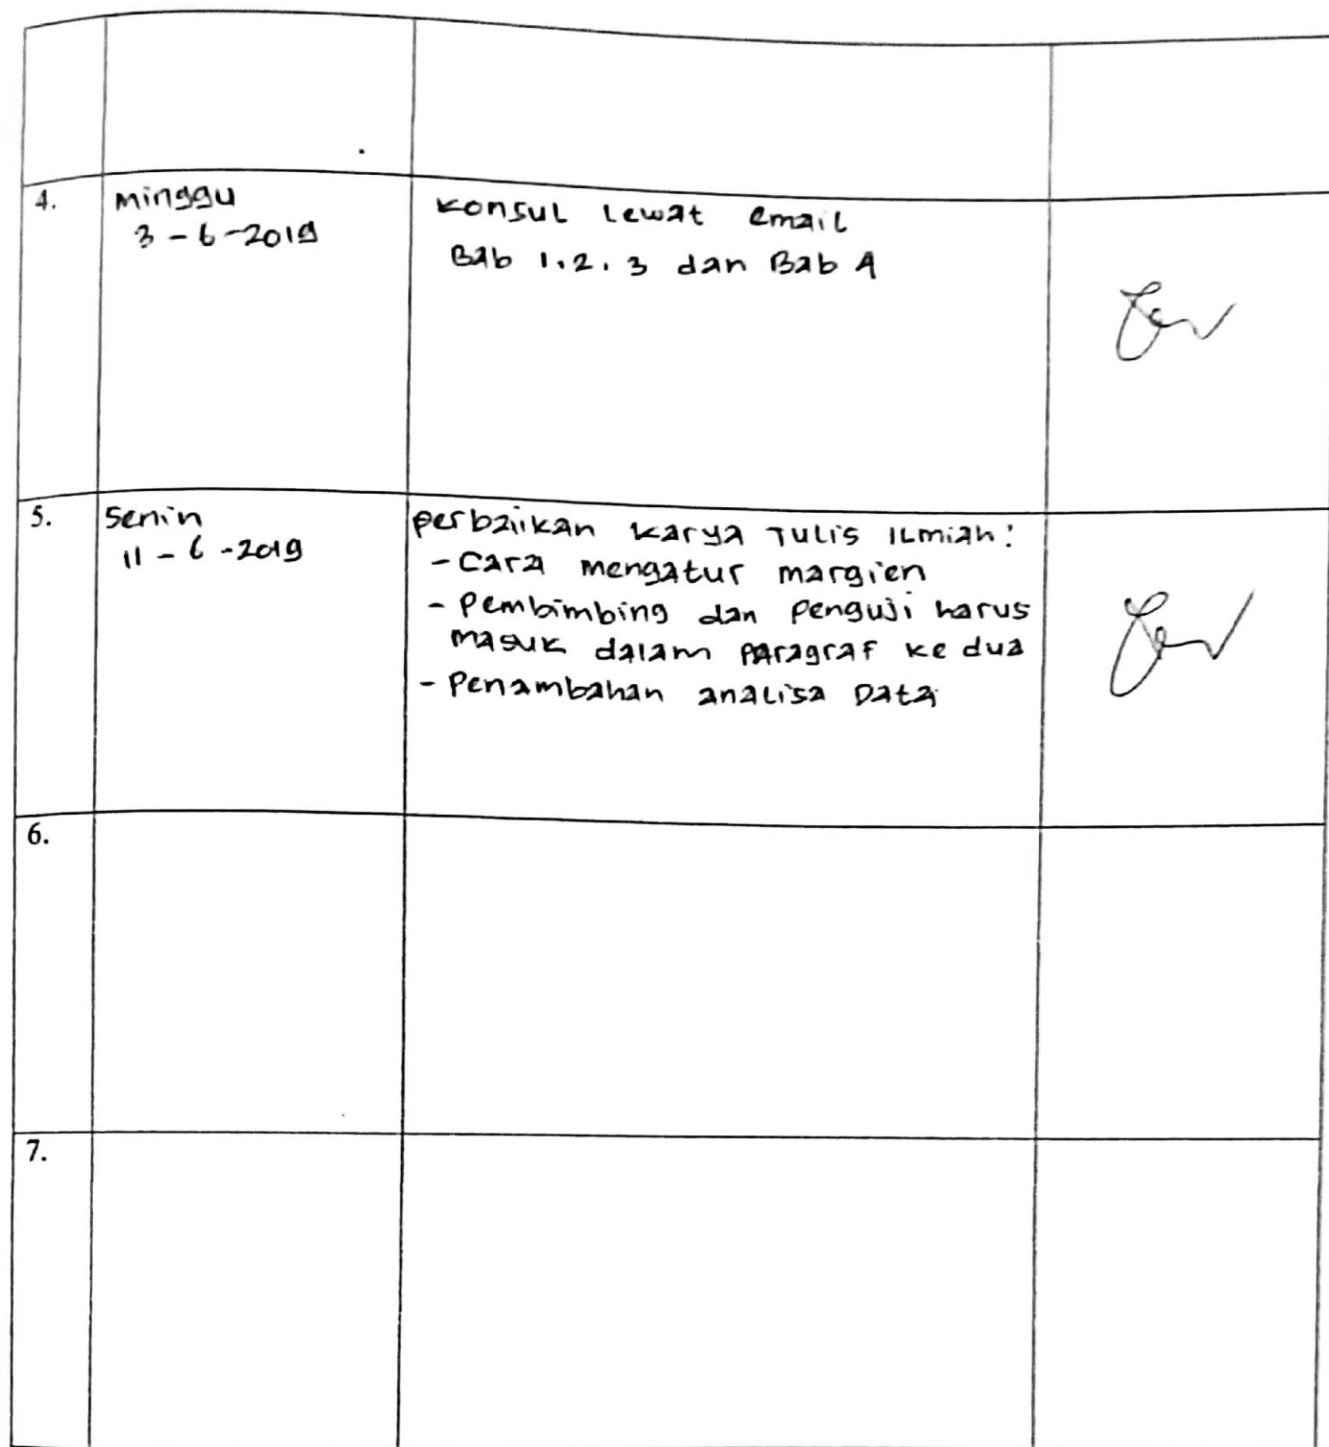 4.
Minggu
3-6-2019
Konsul Lewat email
Bab 1.2.3 dan Bab 4
5.
Senin
11-6-2019
perbaikan karya Tulis Ilmiah:
- Cara mengatur margien
- Pembimbing dan Penguji harus
masuk dalam paragraf ke dua
- Penambahan analisa Data
6.
7.